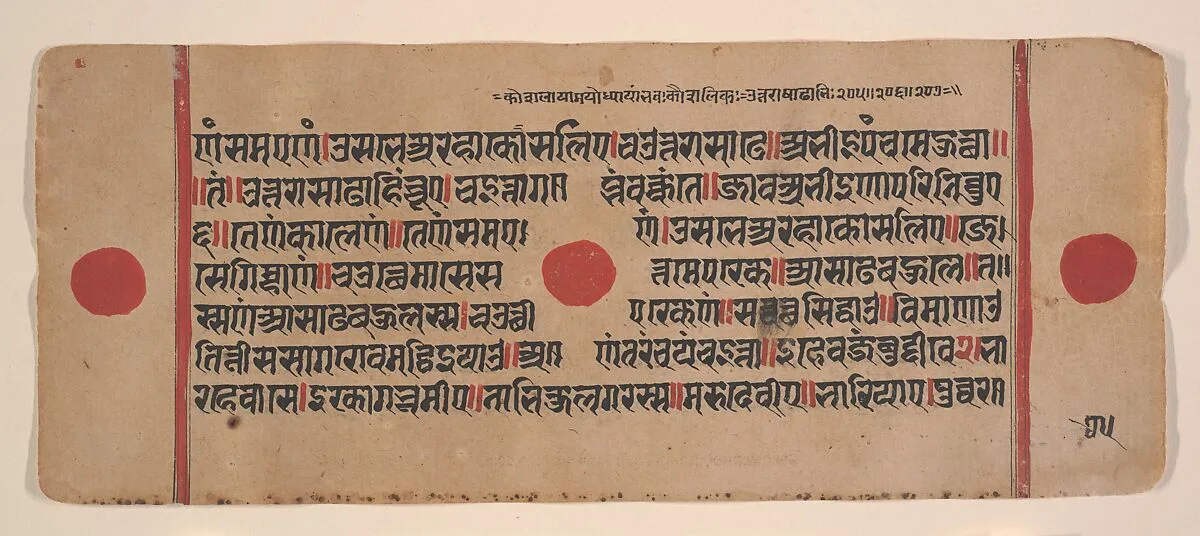 =कोशलायामयोध्यायां भवः कौशलिकः=उत्तराषाढाभिः २०५॥२०६॥२०७=॥
णं समएणं।उसभेअरहाकोसलिए।चउउत्तरासाढे॥अभीइपंचमेहुत्था॥
॥तं॥उत्तरासाढाहिंचुए।चइत्तागब्भंवक्कंते॥जावअभीइणापरिनिव्वुए
६॥तेणंकालेणं॥तेणंसमएणं।उसभेअरहाकोसलिए॥जे
सेगिम्हाणं॥चउत्थेमासेसत्तमेपरके॥आसाढबहुले॥त
स्सणंआसाढबहुलस्स।चउत्थीपरकेणं॥सव्वट्ठसिद्धाउ॥विमाणाउ
तित्तीससागरोवमट्ठिइयाउ॥अणंतरंचयंचइत्ता॥इहेवजंबुद्दीवे२भा
रहेवासे।इरकागभूमीए॥नाभिकुलगरस्स॥मरुदेवीए॥भारियाए।पुव्वरत्ता
७५